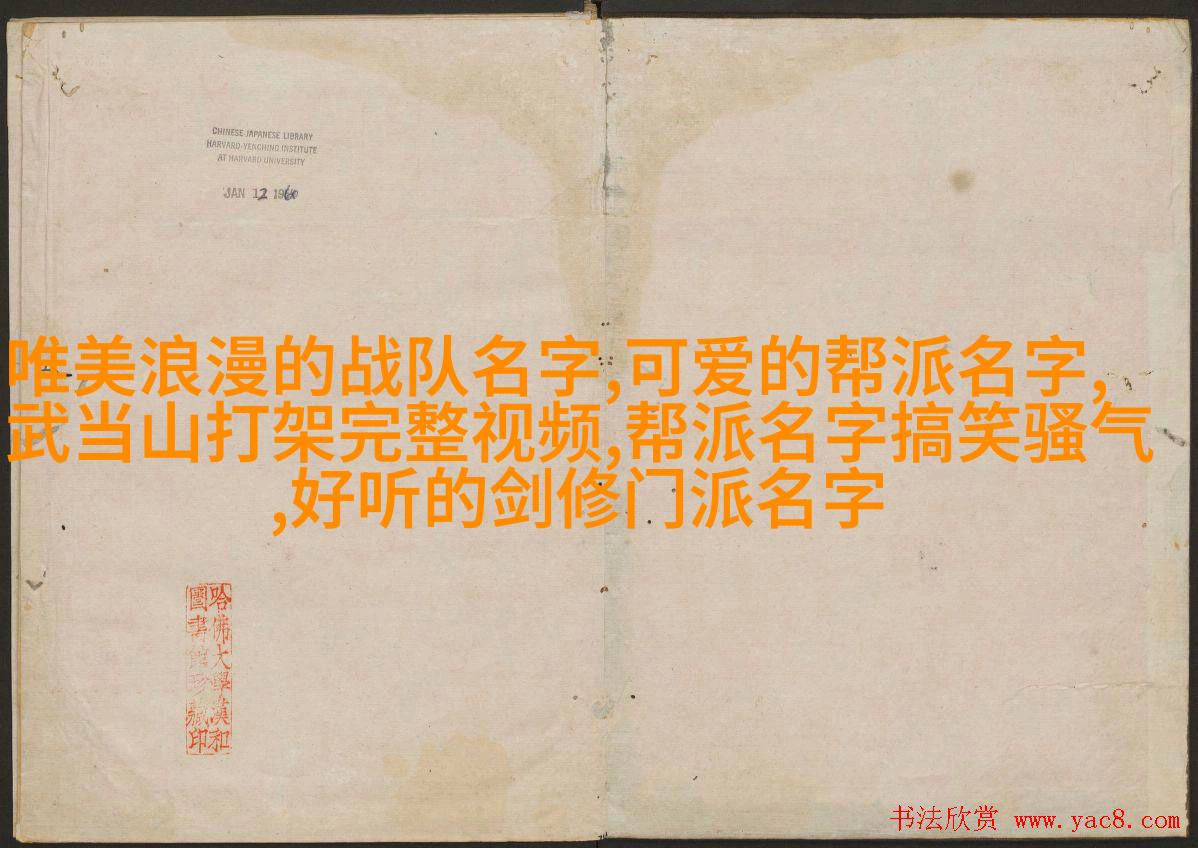 CHINESE-JAPANESE LIBRARY
HARVARD-YENCHING INSTITUTE
AT HARVARD UNIVERSITY
JAN 12 1960
唯美浪漫的战队名字,可爱的帮派名字,
武当山打架完整视频,帮派名字搞笑骚气
,好听的剑修门派名字
哈佛大學漢和
圖書館珍藏印
书法欣赏 www.yac8.com